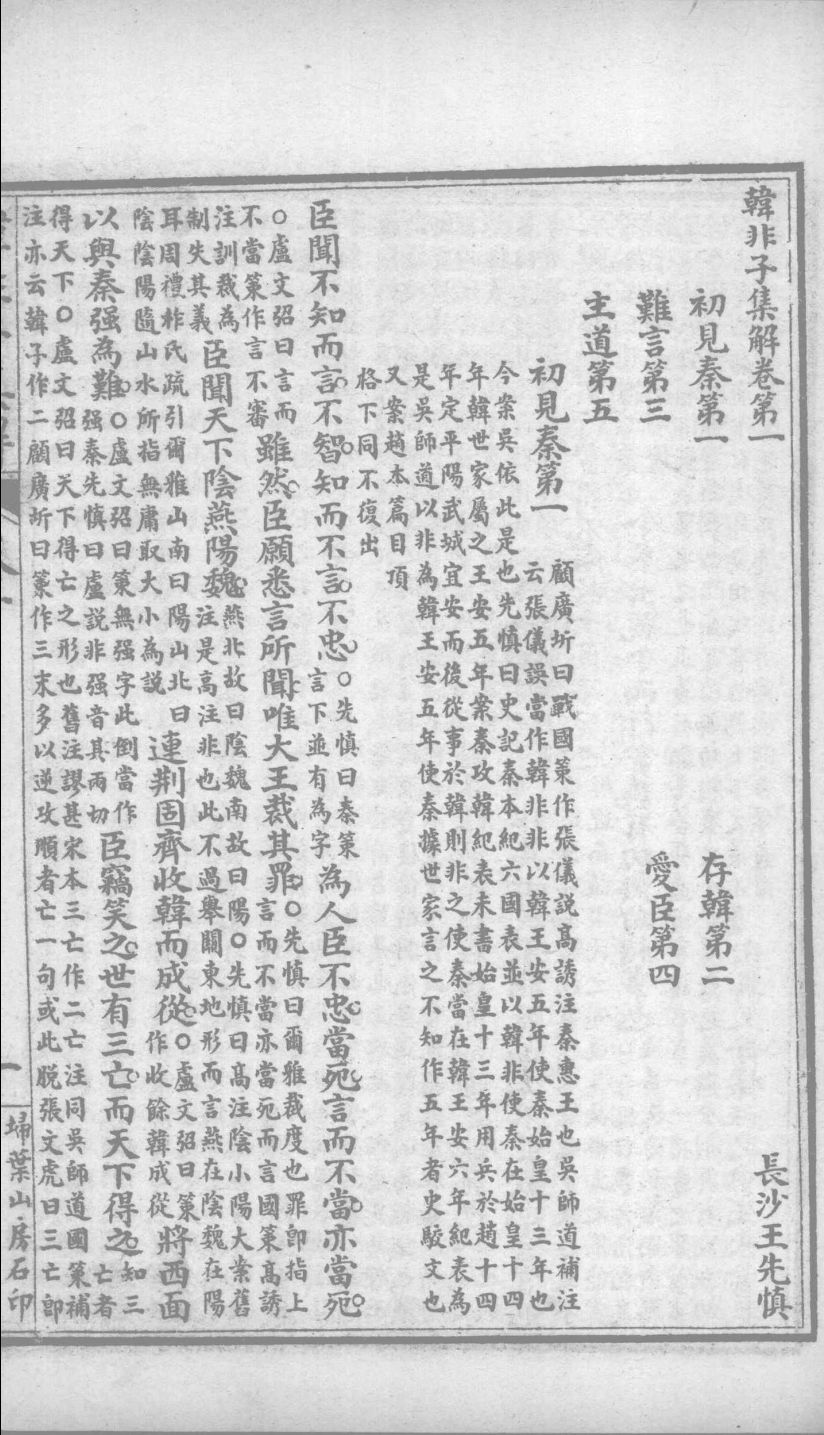 韓非子集解卷第一
長沙王先慎
初見秦第一
存韓第二
難言第三
愛臣第四
主道第五
初見秦第一
顧廣圻曰戰國策作張儀說高誘注秦惠王也吳師道補注
云張儀誤當作韓非非以韓王安五年使秦始皇十三年也
今案吳依此是也先慎曰史記秦本紀六國表並以韓非使秦在始皇十四
年韓世家屬之王安五年案秦攻韓紀表未書始皇十三年用兵於趙十四
年定平陽武城宜安而後從事於韓則非之使秦當在韓王安六年紀表為
是吳師道以非為韓王安五年使秦據世家言之不知作五年者史駮文也
又案趙本篇目頂
格下同不復出
臣聞不知而言不智知而不言不忠
○先慎曰秦策
言下並有為字
為人臣不忠當死言而不當亦當死
○盧文弨曰言而
不當策作言不審
雖然臣願悉言所聞唯大王裁其罪
○先慎曰爾雅裁度也罪卽指上
言而不當亦當死而言國策高誘
注訓裁為
制失其義
臣聞天下陰燕陽魏
燕北故曰陰魏南故曰陽○先慎曰高注陰小陽大案舊
注是高注非也此不過舉關東地形而言燕在陰魏在陽
耳周禮柞氏疏引爾雅山南曰陽山北曰
陰陰陽隨山水所指無庸取大小為說
連荆固齊收韓而成從
○盧文弨曰策
作收餘韓成從
將西面
以與秦强為難
○盧文弨曰策無强字此倒當作
强秦先慎曰盧說非强音其兩切
臣竊笑之世有三亡而天下得之
知三
亡者
得天下○盧文弨曰天下得亡之形也舊注謬甚宋本三亡作二亡注同吳師道國策補
注亦云韓子作二顧廣圻曰策作三末多以逆攻順者亡一句或此脫張文虎曰三亡卽
一
埽葉山房石印